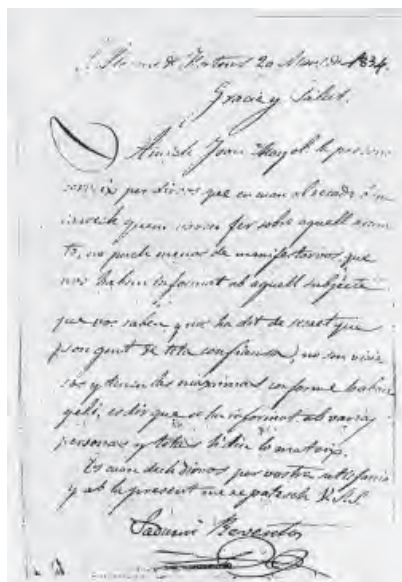 S. Llorens de Hortons 20 Mars de 1834.
Gracia y Salut.
Amich Joan Mayol: la present
serveix per dirvos que en cuan al recado é in
quem vareu fer sobre aquell asum
to, no puch menos de manifestarvos que
nos habem informat ab aquell subjecte
que vos sabeu y nos ha dit de secret que
son gent de tota confiansa, no son vicio
sos y tenen las maximas conforme lo Evan
geli, es dir que se ha informat ab varias
personas y totas li diu lo mateix.
Es cuan dech dirvos per vostra
y ab la present me repetesch S.S.
Sadurni Raventos